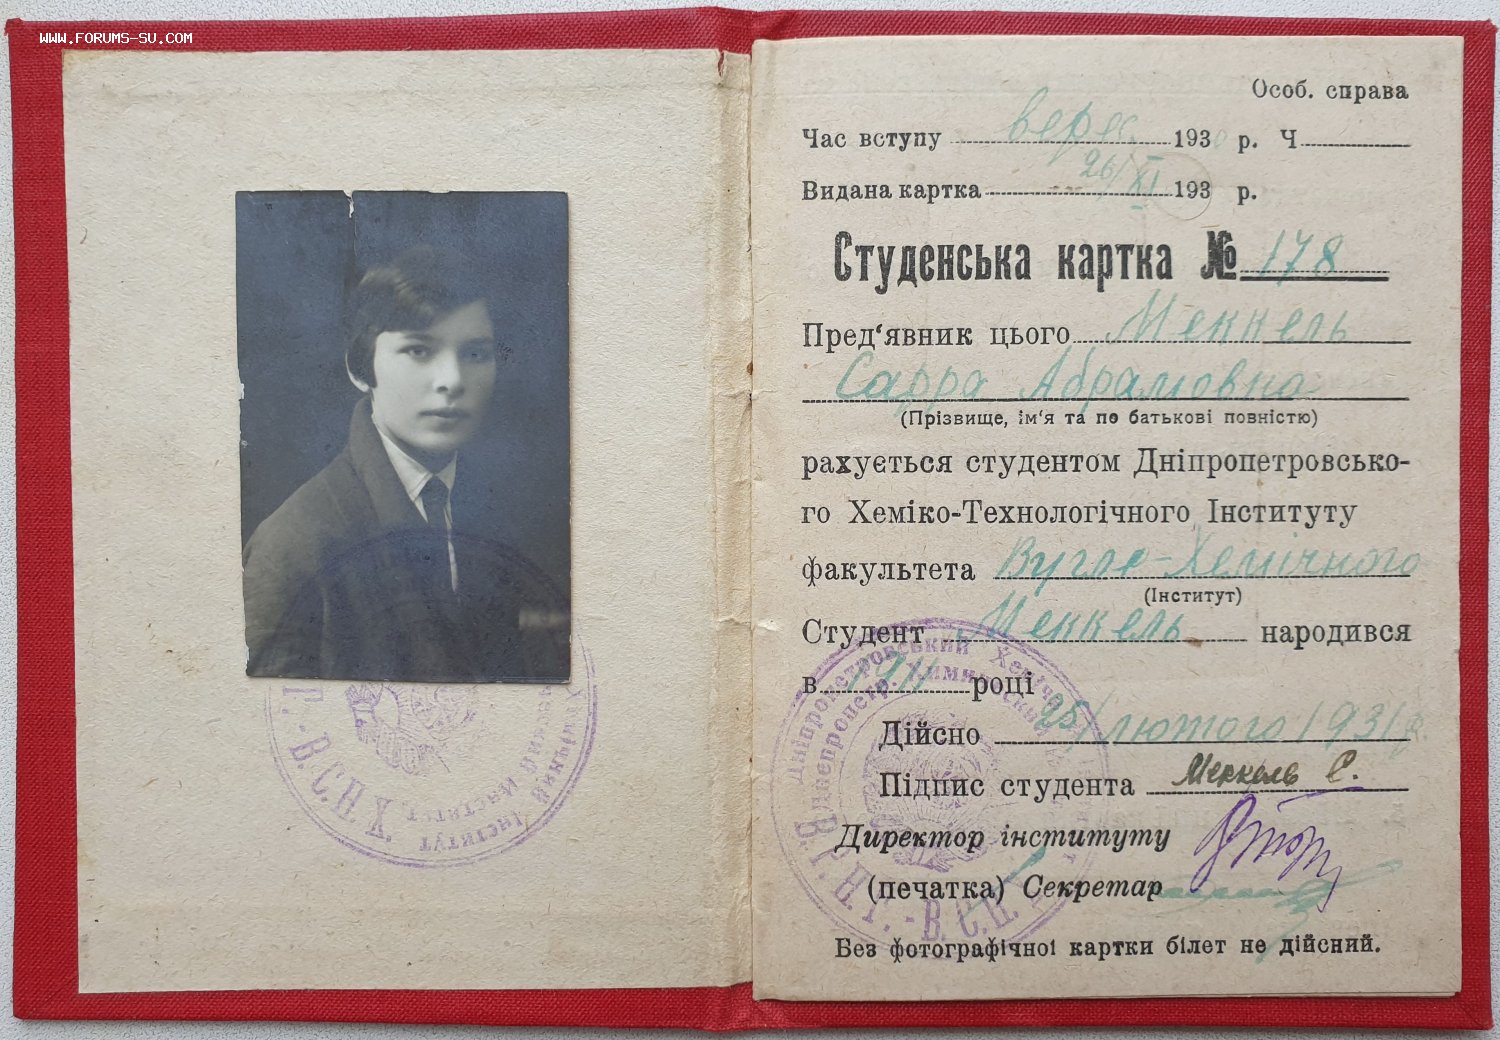 WWW.FORUMS-SU.COM
Особ. справа
Час вступу верес. 1930 р. Ч
Видана картка 26/XI 193 р.
Студенська картка № 178
Пред'явник цього Меккель
Сарра Абрамовна
(Прізвище, ім'я та по батькові повністю)
рахується студентом Дніпропетровсько-
го Хеміко-Технологічного Інституту
факультета Вугле-Хемічного
(Інститут)
Студент Меккель народився
в 1911 році
Дійсно 25/лютого 1931 р.
Підпис студента Меккель С.
Директор інституту
(печатка) Секретар
Без фотографічної картки білет не дійсний.
Дніпропетровський Хемічний
Інститут
В.Р.Н.Г. - В.С.Н.Х.